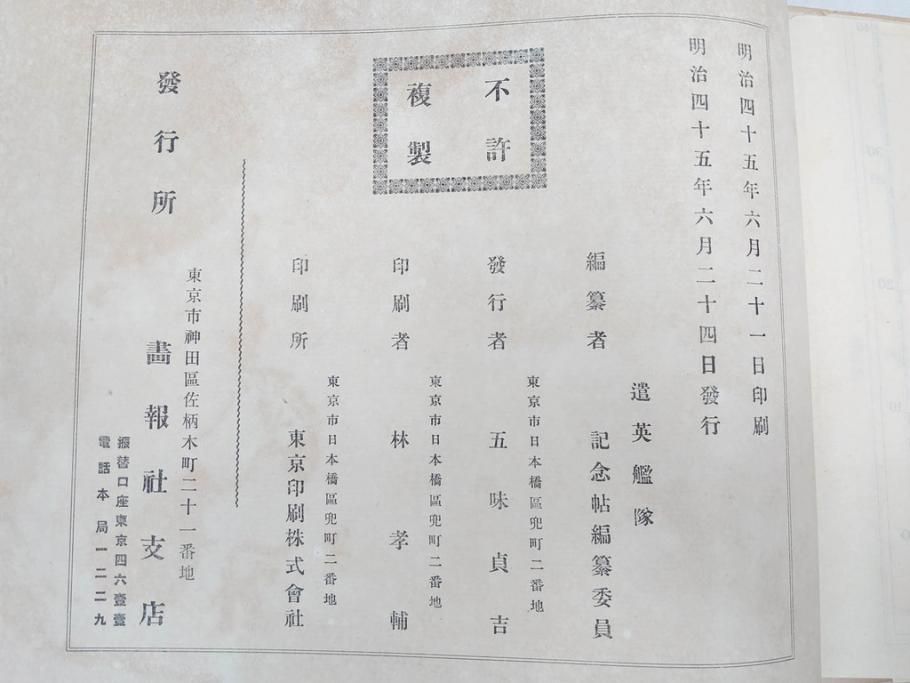 明治四十五年六月二十一日印刷
明治四十五年六月二十四日發行
不許
複製
遣英艦隊
編纂者 記念帖編纂委員
東京市日本橋區兜町二番地
發行者 五味貞吉
東京市日本橋區兜町二番地
印刷者 林孝輔
東京市日本橋區兜町二番地
印刷所 東京印刷株式會社
東京市神田區佐柄木町二十一番地
發行所 畫報社支店
振替口座東京四六壹壹
電話本局一二二九